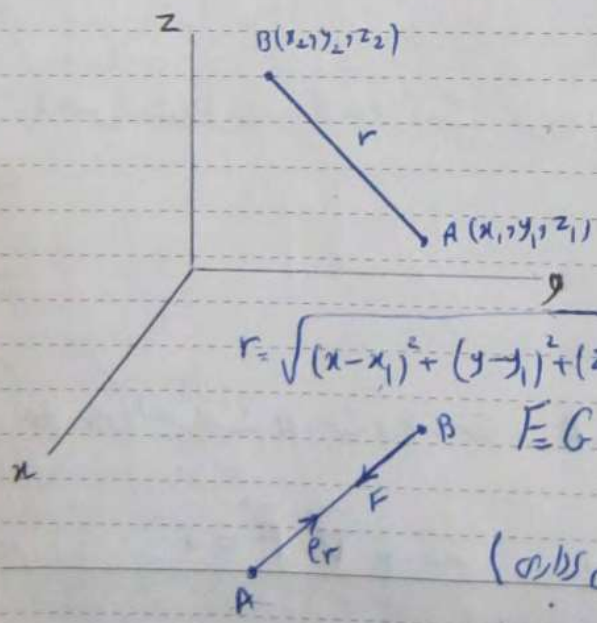 z
B(x₂,y₂,z₂)
r
A (x₁,y₁,z₁)
y
r= √(x-x₁)² + (y-y₁)² + (z
x
B
F=G
F
er
A